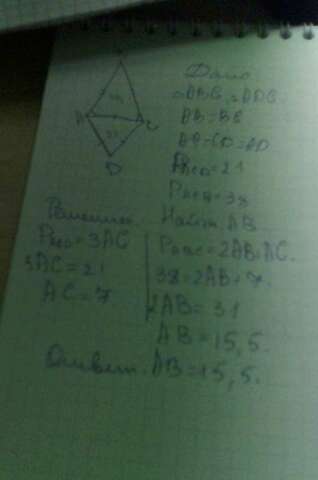 Дано
△ABC, △ADC
AB=BC
AC=CD=AD
P ACD=21
P ABC=38
Найти AB
Решение
P ACD=3AC
3AC=21
AC=7
P ABC=2AB+AC.
38=2AB+7.
2AB=31
AB=15,5.
Ответ: AB=15,5.
D